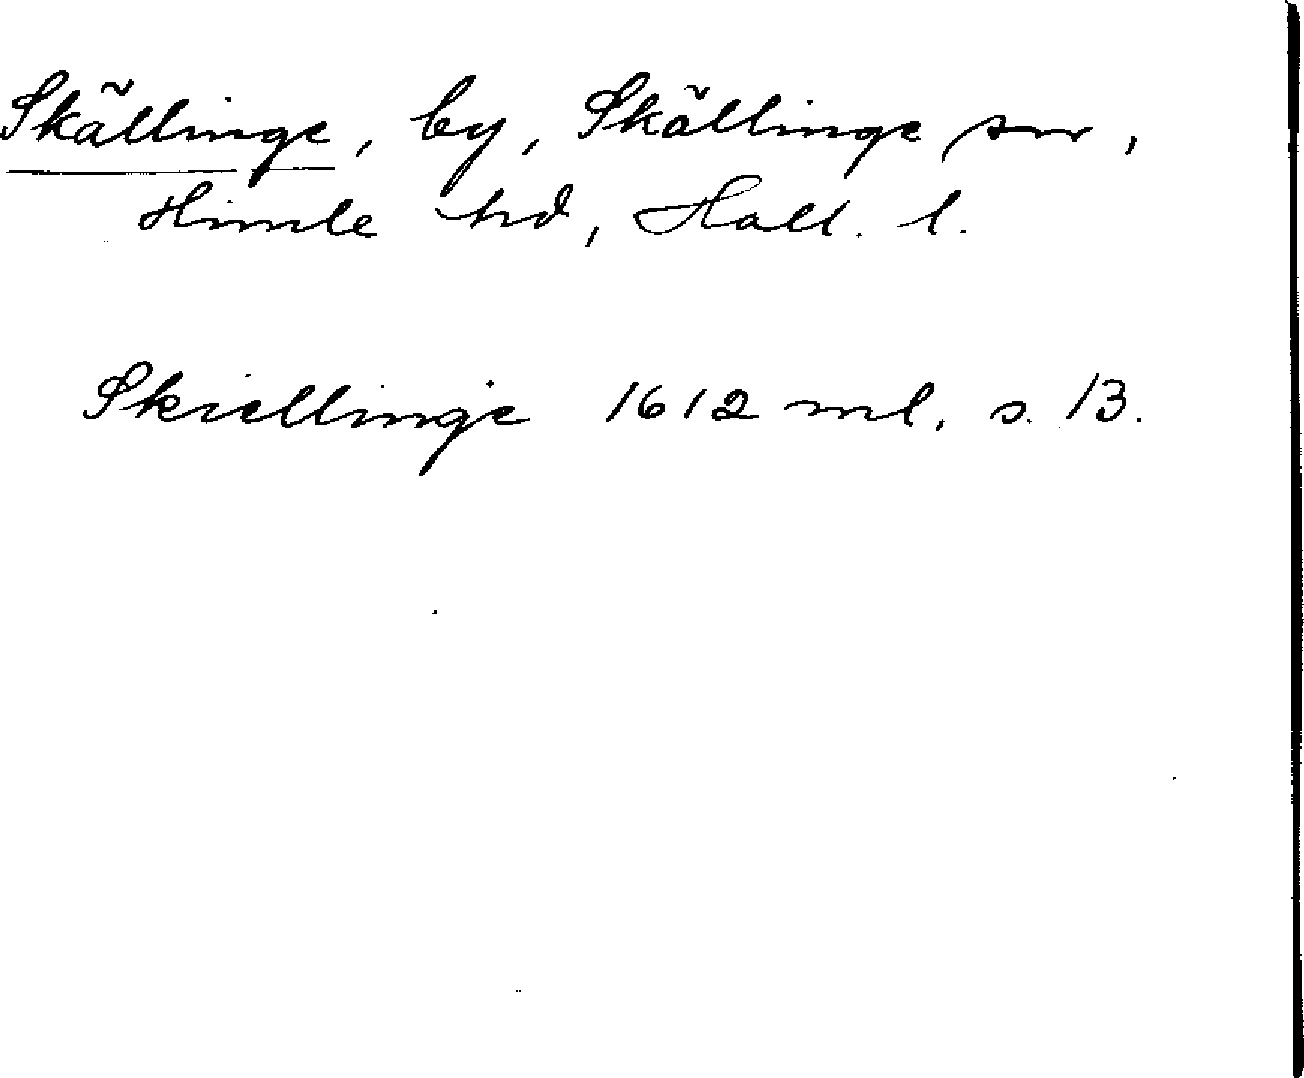 Skällinge, by, Skällinge sn,
Himle hd, Hall. l.
Skiellinge 1612 ml, s. 13.